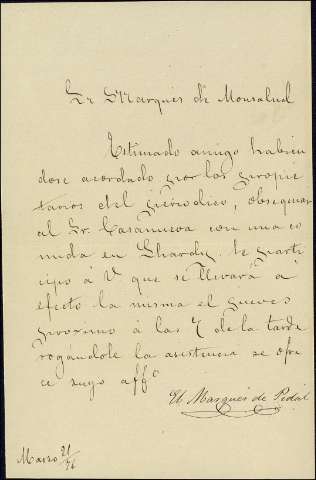 Sr Marques de Monsalud
Estimado amigo habien
dose acordado por los propie
tarios del periodico, obsequiar
al Sr. Casanueva con una co
mida en Lhardy, le parti
cipo á V que se llevará á
efecto la misma el jueves
proximo á las 7 de la tarde
rogándole la asistencia se ofre
ce suyo affº
El Marques de Pidal
Marzo 21/96